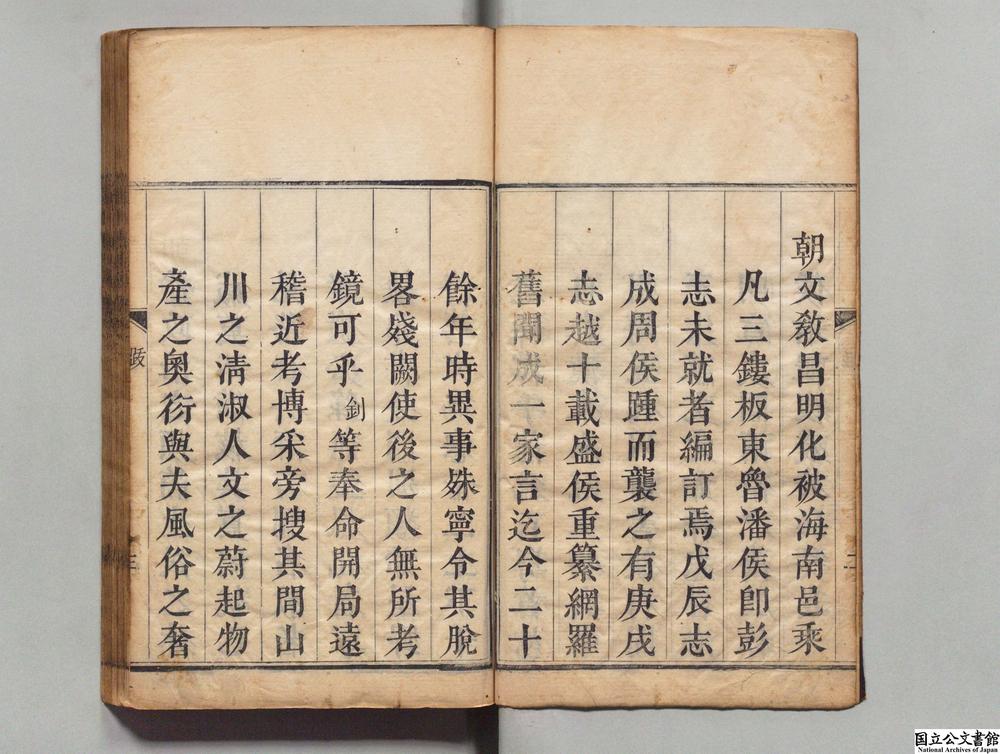 朝文敎昌明化被海南邑乘
凡三鏤板東魯潘侯卽彭
志未就者編訂焉戊辰志
成周侯踵而襲之有庚戌
志越十載盛侯重纂網羅
舊聞成一家言迄今二十
餘年時異事姝寧令其脫
畧殘闕使後之人無所考
鏡可乎釗等奉命開局遠
稽近考博采旁搜其間山
川之淸淑人文之蔚起物
產之奧衍與夫風俗之奢
跋
三
二
国立公文書館
National Archives of Japan